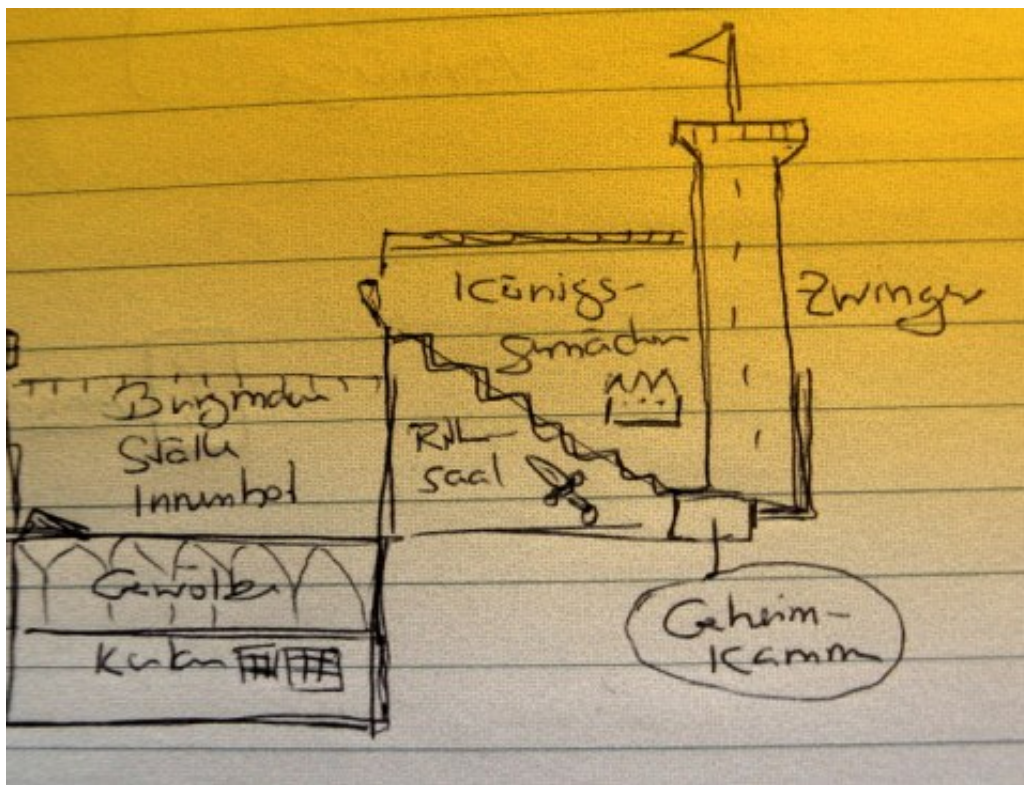 Königs-
gemächer
Zwinger
Burgmauer
Ställe
Innenhof
Ritter-
saal
Gewölbe
Kerker
Geheim-
kammer